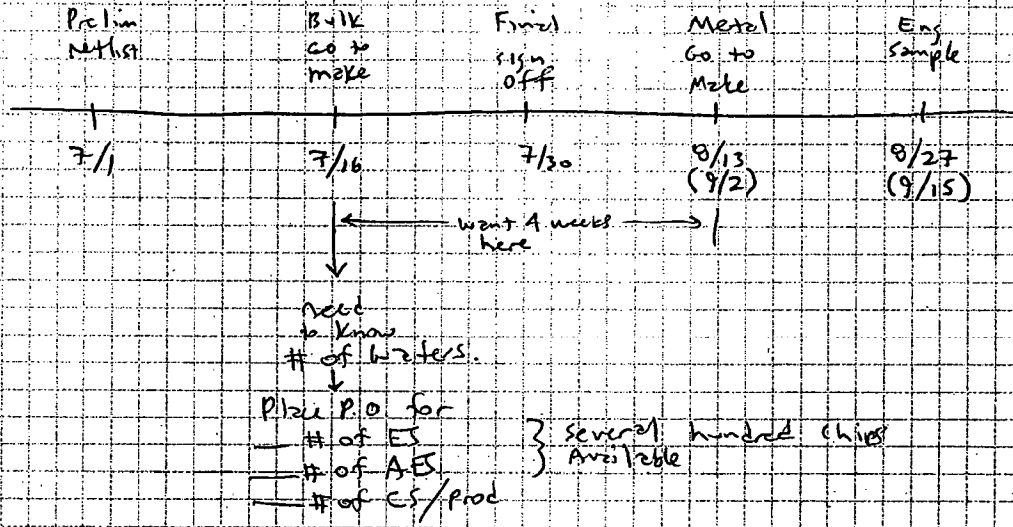 Prelim
Netlist
Bulk
Go to
make
Final
sign
off
Metal
Go to
Make
Eng
Sample
7/1
7/16
7/30
8/13
(9/2)
8/27
(9/15)
want 4 weeks
here
need
to know
# of wafers.
Place P.O for
# of ES
# of AES
# of CS/prod
several hundred chips
Available